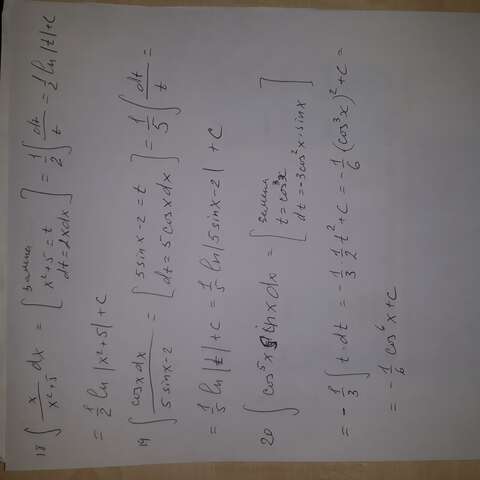 18 ∫ x/(x²+5) dx = [замена x²+5=t dt=2xdx] = 1/2 ∫ dt/t = 1/2 ln|t|+C
= 1/2 ln|x²+5|+C
19 ∫ cosxdx/(5sinx-2) = [5sinx-2=t dt=5cosxdx] = 1/5 ∫ dt/t =
= 1/5 ln|t|+C = 1/5 ln|5sinx-2|+C
20 ∫ cos⁵x sinxdx = [замена t=cos³x dt=-3cos²x·sinx]
= -1/3 ∫ t·dt = -1/3 1/2 t²+C = -1/6 (cos³x)²+C =
= -1/6 cos⁶x+C